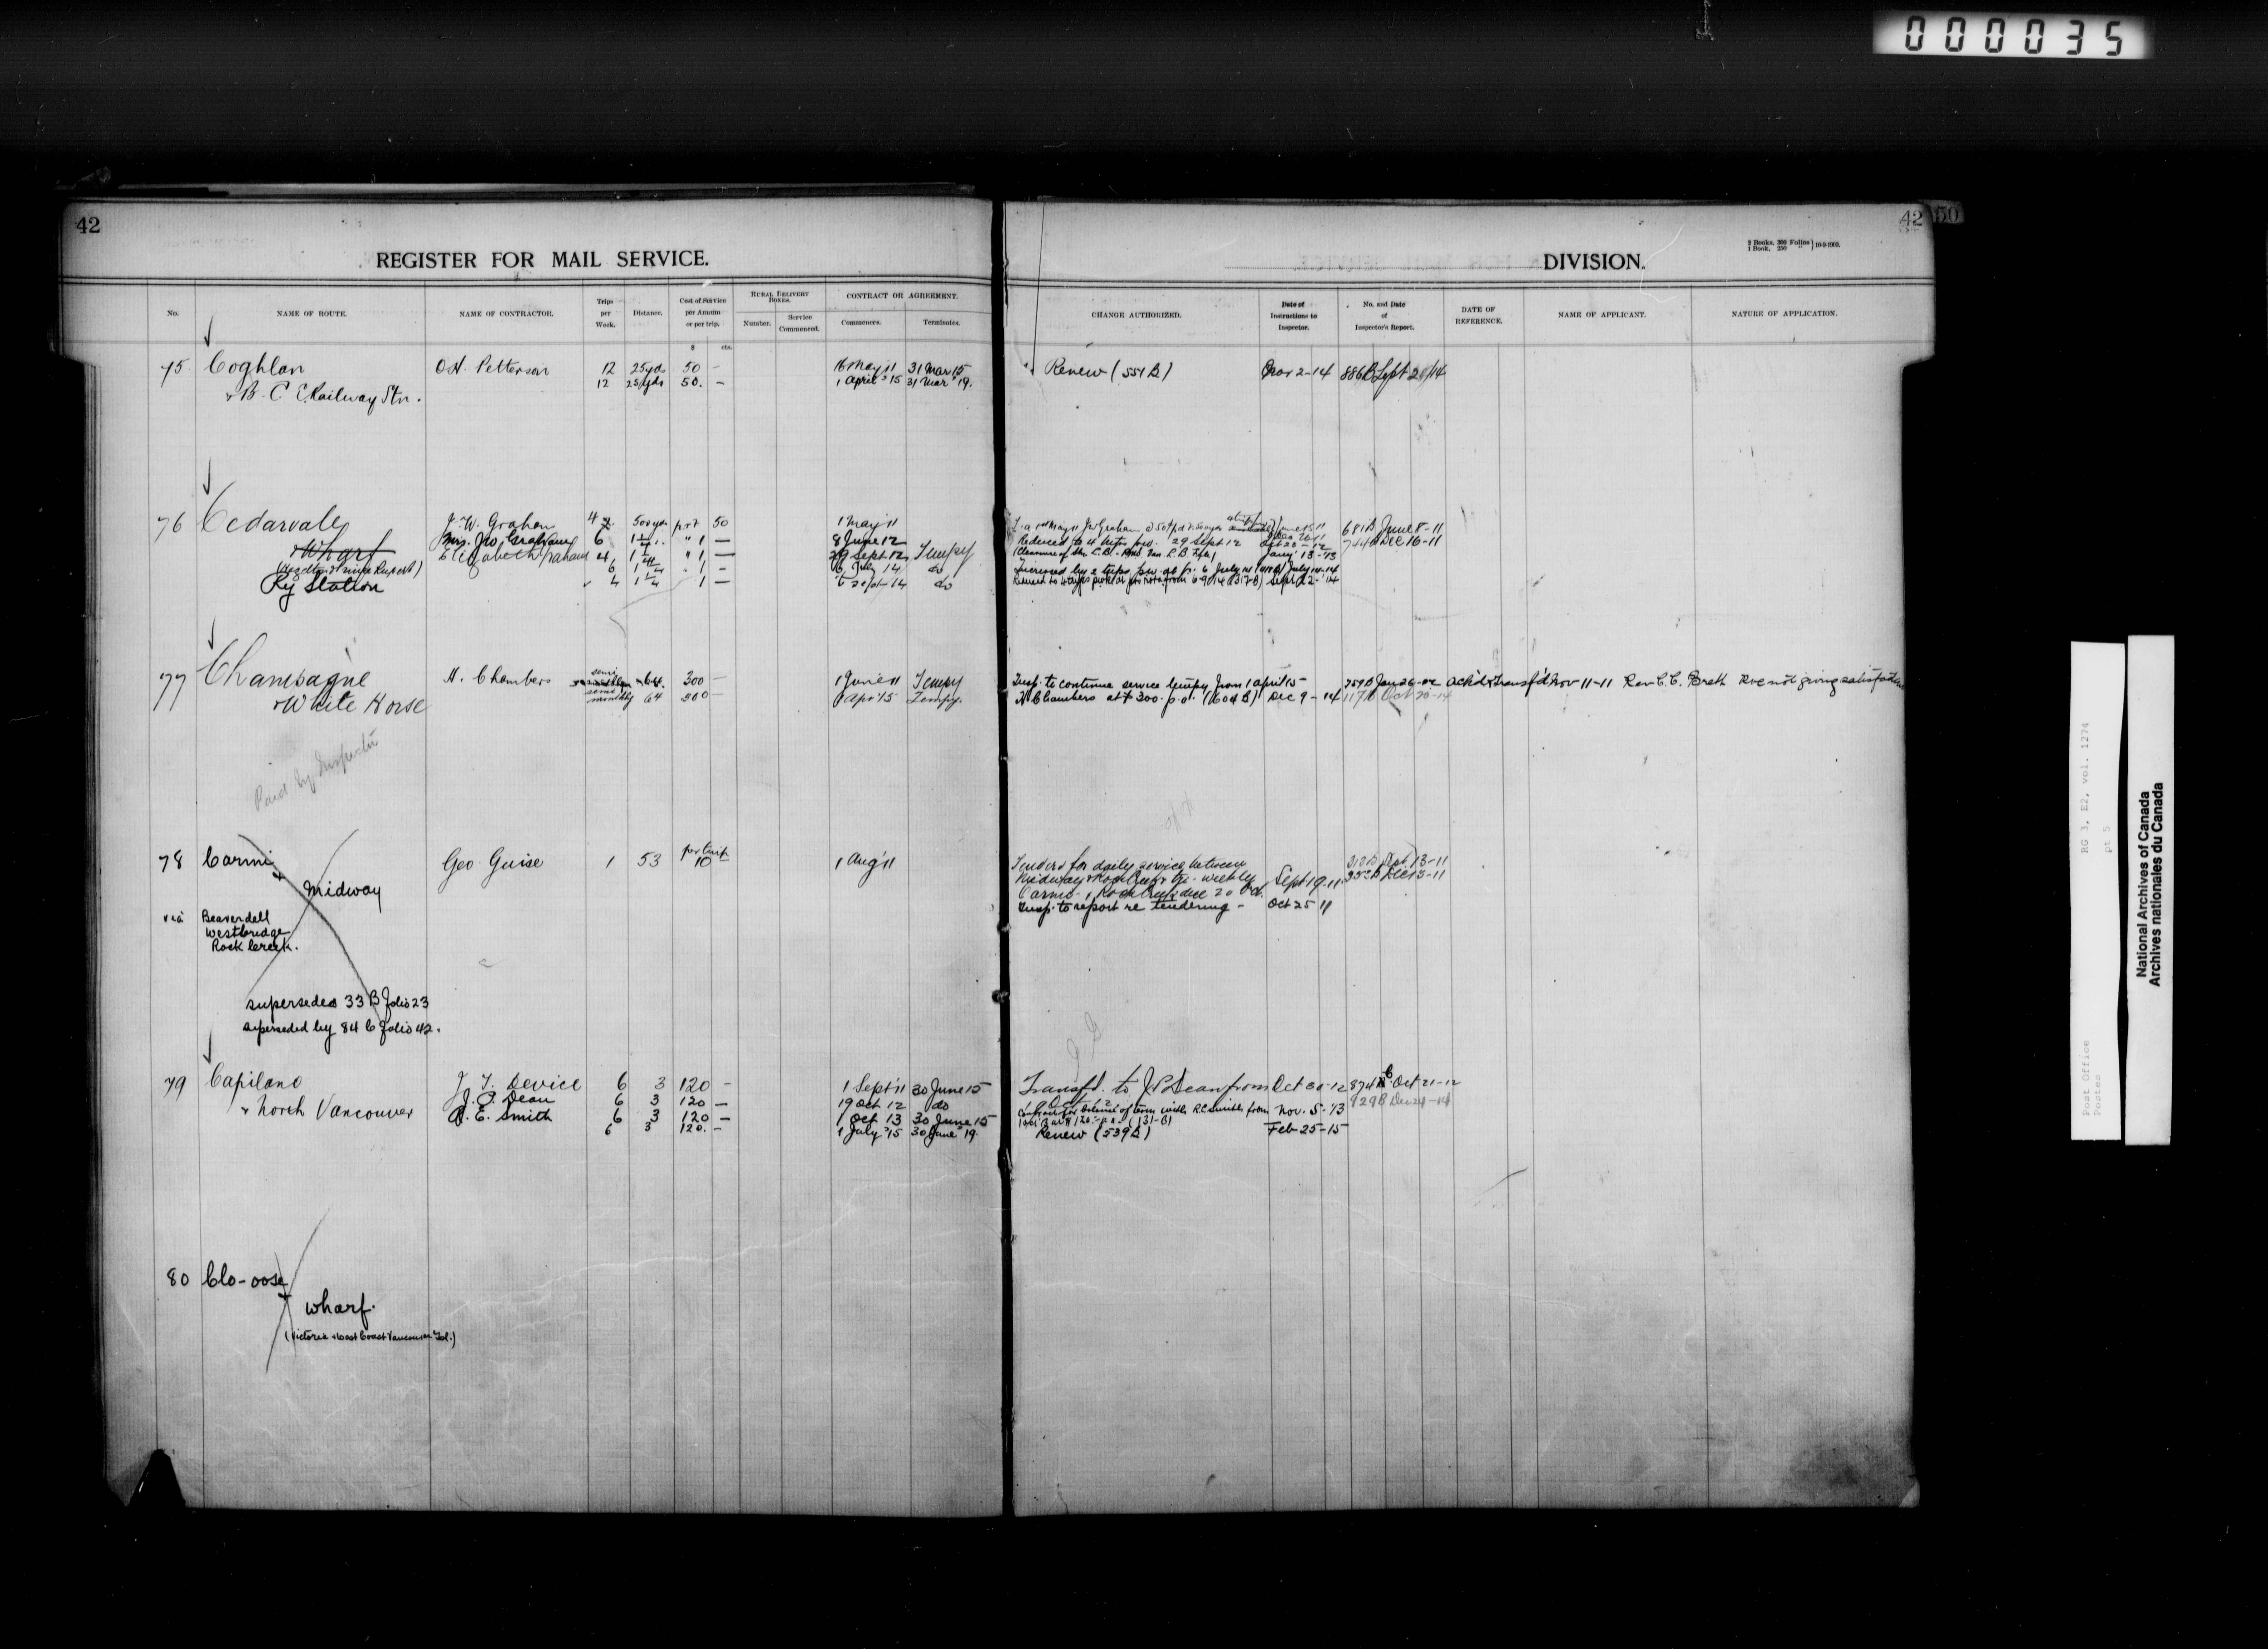 000035
42
REGISTER FOR MAIL SERVICE.
No.
NAME OF ROUTE.
NAME OF CONTRACTOR.
Trips per Week.
Distance.
Cost of Service per Annum or per trip.
$ cts.
RURAL DELIVERY BOXES.
Number.
Service Commenced.
CONTRACT OR AGREEMENT.
Commences.
Terminates.
75 Coghlan O.H. Petterson 12 25 yds 50 – 16 May 11 31 Mar 15
12 25 yds 50. – 1 April '15 31 Mar '19.
& B. C. E. Railway Stn.
76 Cedarvale J. W. Graham 4 500 yds p.r.t. 50 1 May 11
& Wharf Mrs. J.W. Graham 6 " 1 – 8 June 12
Elizabeth Graham 4 1/4 " 1 – 29 Sept 12 Tempy
(Hazelton & Prince Rupert) 6 1/4 " 1 – 6 July 14 do
Ry Station 4 1/4 1 – 6 Sept 14 do
77 Champagne H. Chambers semi monthly 64 300 – 1 June 11 Tempy
& White Horse semi monthly 64 300 – 1 Apr 15 Tempy.
Paid by Inspector
78 Carmi Geo Guise 1 53 per trip 10 – 1 Aug 11
& Midway
via Beaverdell
Westbridge
Rock Creek.
supersedes 33 B folio 23
superseded by 84 C folio 42.
79 Capilano J. T. Device 6 3 120 – 1 Sept 11 30 June 15
& North Vancouver J. P. Dean 6 3 120 – 19 Oct 12 do
R. E. Smith 6 3 120 – 1 Oct 13 30 June 15
6 3 120. – 1 July '15 30 June '19.
80 Clo-oose
& wharf.
(Victoria & West Coast Vancouver Isl.)
42 50
2 Books, 300 Folios
1 Book, 250 "
10-9-1909.
DIVISION.
CHANGE AUTHORIZED.
Date of Instructions to Inspector.
No. and Date of Inspector's Report.
DATE OF REFERENCE.
NAME OF APPLICANT.
NATURE OF APPLICATION.
Renew (551 B) Nov 2-14 886 B Sept 28/14
1st May 11 J W Graham @ 50¢ p.t. 500 yds June 15 11 681 B June 8-11
Reduced to 4 trips p.w. 29 Sept 12 Oct 20-12 744 B Dec 16-11
Jany 13-13
Increased by 2 trips p.w. 6 July 14 July 14-14
Reduced to 4 trips from 6-9-14 (317 B) Sept 22-14
Insp. to continue service tempy from 1 April 15 – 759 B Jan 26-12 Ack'd & transf'd Nov 11-11 Rev. C. C. Brett Svce not giving satisfaction
H Chambers at $300. p.a. (604 B) Dec 9-14 1176 Oct 20-14
Tenders for daily service between 312 B Sept 13-11
Midway & Rock Creek & tri-weekly Sept 19-11 352 B Dec 13-11
Carmi & Rock Creek due 20 Oct.
Insp. to report re tendering – Oct 25 11
Transfd. to J. P. Dean from Oct 30-12 874 B Oct 21-12
19 Oct 12 829 B Dec 24-14
Contract for balance of term with R.E. Smith from Nov. 5-'13
1 Oct 13 at $120. – p.a. (131-B)
Renew (539 B) Feb-25-15
RG 3, E2, vol. 1274
pt 5
Post Office
Postes
National Archives of Canada
Archives nationales du Canada